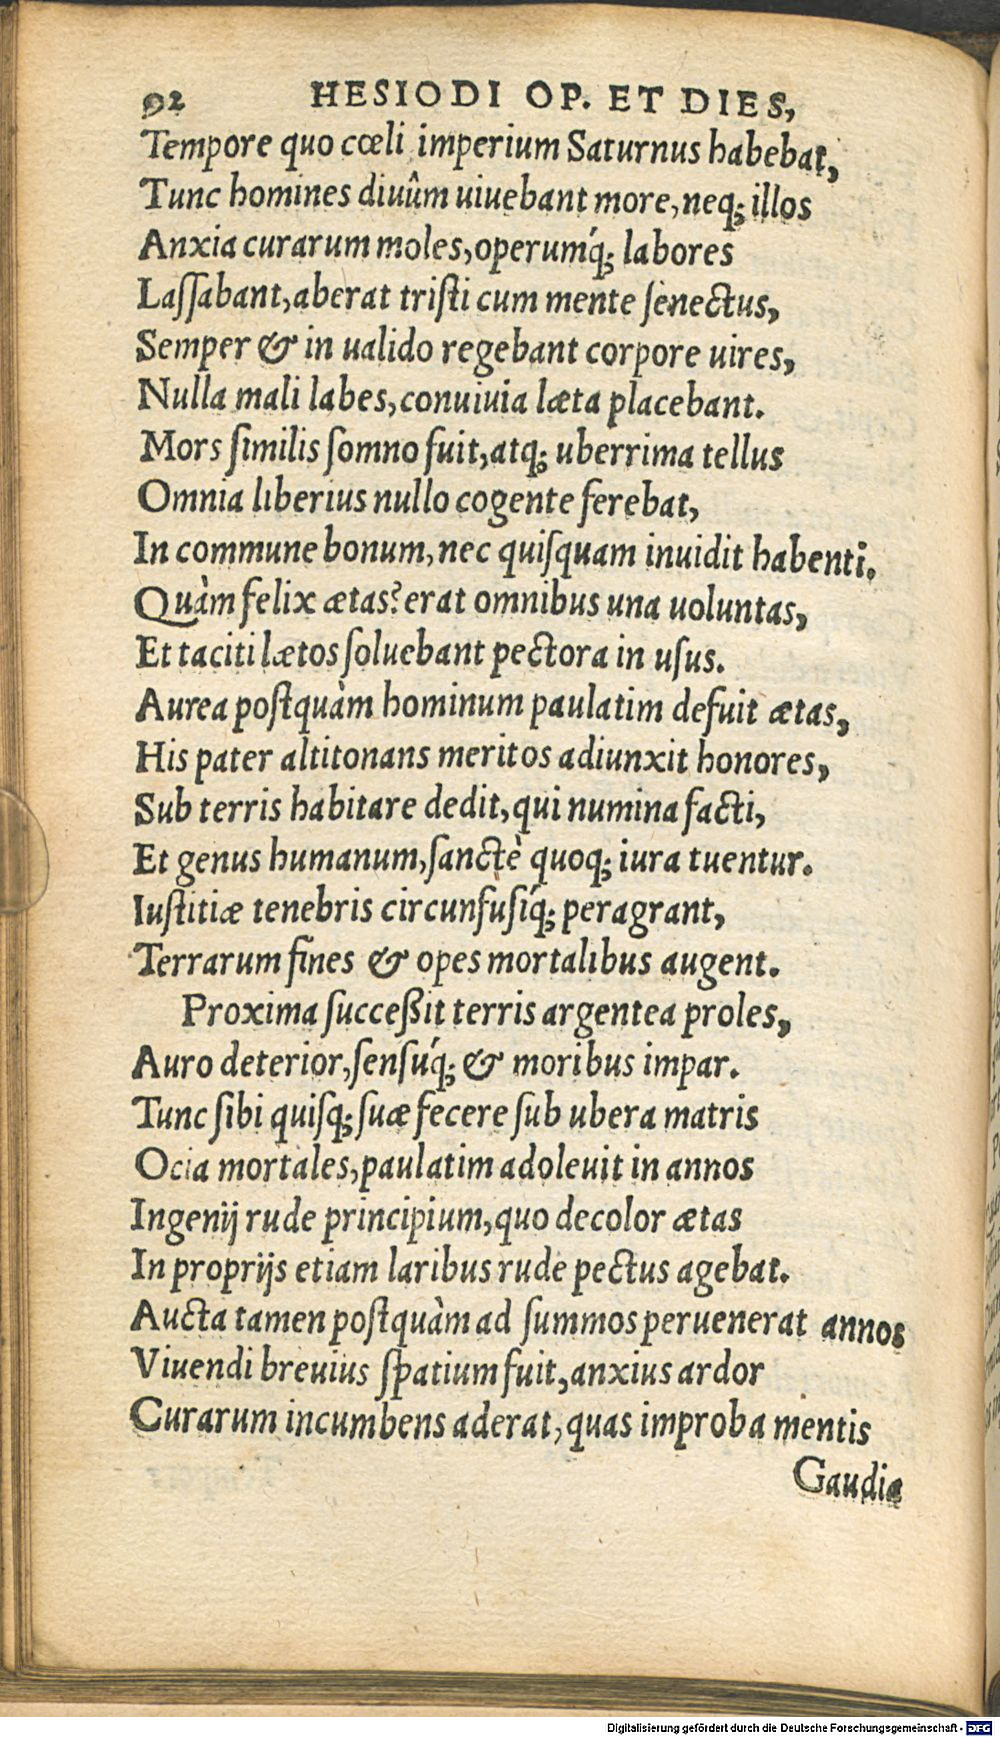 92 HESIODI OP. ET DIES,
Tempore quo cœli imperium Saturnus habebat,
Tunc homines diuûm uiuebant more, neq; illos
Anxia curarum moles, operumq́; labores
Laſſabant, aberat triſti cum mente ſenectus,
Semper & in ualido regebant corpore uires,
Nulla mali labes, conuiuia læta placebant.
Mors ſimilis ſomno fuit, atq; uberrima tellus
Omnia liberius nullo cogente ferebat,
In commune bonum, nec quiſquam inuidit habenti.
Quàm felix ætas? erat omnibus una uoluntas,
Et taciti lætos ſoluebant pectora in uſus.
Aurea poſtquàm hominum paulatim defuit ætas,
His pater altitonans meritos adiunxit honores,
Sub terris habitare dedit, qui numina facti,
Et genus humanum, ſanctè quoq; iura tuentur.
Iuſtitiæ tenebris circunfuſiq́; peragrant,
Terrarum fines & opes mortalibus augent.
Proxima ſucceßit terris argentea proles,
Auro deterior, ſenſuq́; & moribus impar.
Tunc ſibi quiſq; ſuæ fecere ſub ubera matris
Ocia mortales, paulatim adoleuit in annos
Ingenij rude principium, quo decolor ætas
In proprijs etiam laribus rude pectus agebat.
Aucta tamen poſtquàm ad ſummos peruenerat annos
Viuendi breuius ſpatium fuit, anxius ardor
Curarum incumbens aderat, quas improba mentis
Gaudia
Digitalisierung gefördert durch die Deutsche Forschungsgemeinschaft - DFG